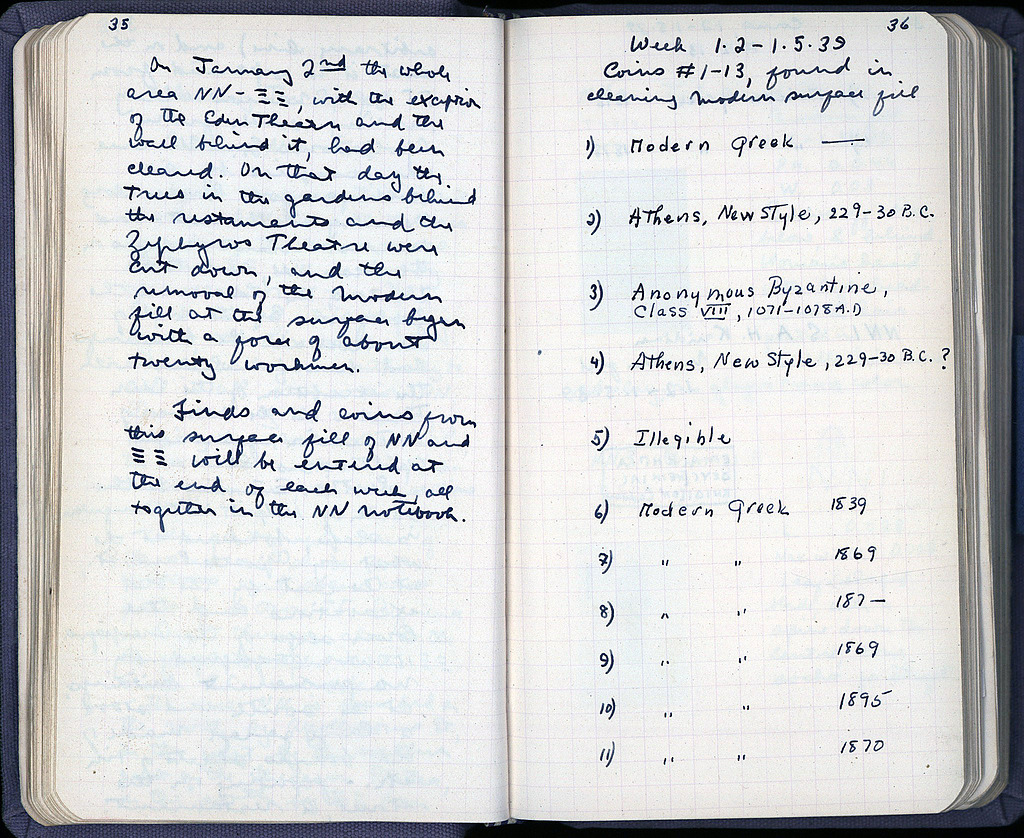 35
On January 2nd the whole
area NN-ΞΞ, with the exception
of the Eden Theatre and the
wall behind it, had been
cleared. On that day the
trees in the gardens behind
the restaurants and the
Zephyros Theatre were
cut down, and the
removal of the modern
fill at the surface began
with a force of about
twenty workmen.
Finds and coins from
this surface fill of NN and
ΞΞ will be entered at
the end of each week, all
together in the NN notebook.
36
Week 1.2-1.5.39
Coins #1-13, found in
cleaning modern surface fill
1) Modern Greek —
2) Athens, New Style, 229-30 B.C.
3) Anonymous Byzantine,
Class VIII, 1071-1078 A.D
4) Athens, New Style, 229-30 B.C. ?
5) Illegible
6) Modern Greek 1839
7) " " 1869
8) " " 187—
9) " " 1869
10) " " 1895
11) " " 1870